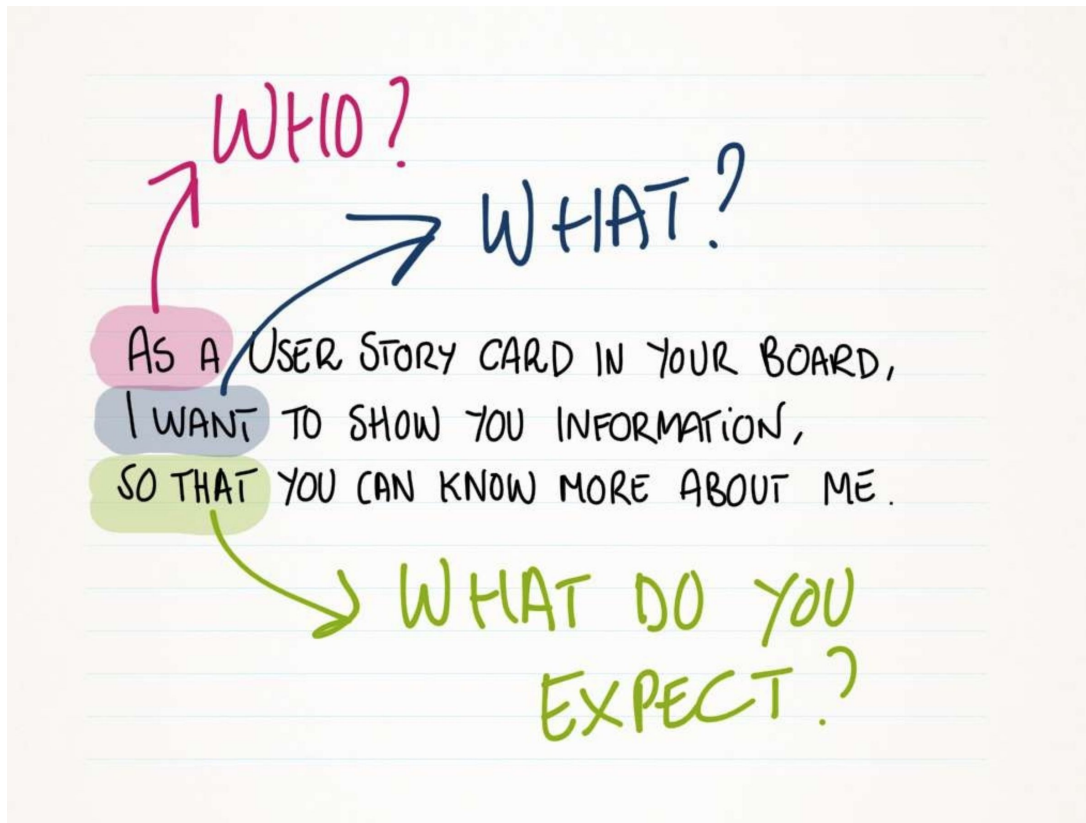 WHO?
WHAT?
AS A USER STORY CARD IN YOUR BOARD,
I WANT TO SHOW YOU INFORMATION,
SO THAT YOU CAN KNOW MORE ABOUT ME.
WHAT DO YOU
EXPECT?